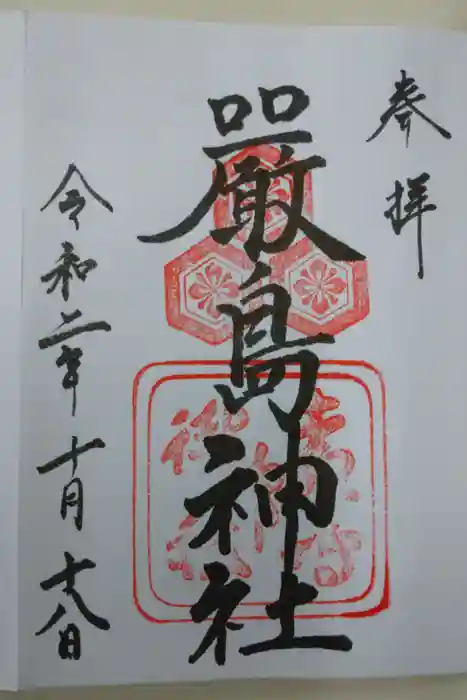 奉拝
嚴島神社
令和二年十月十八日